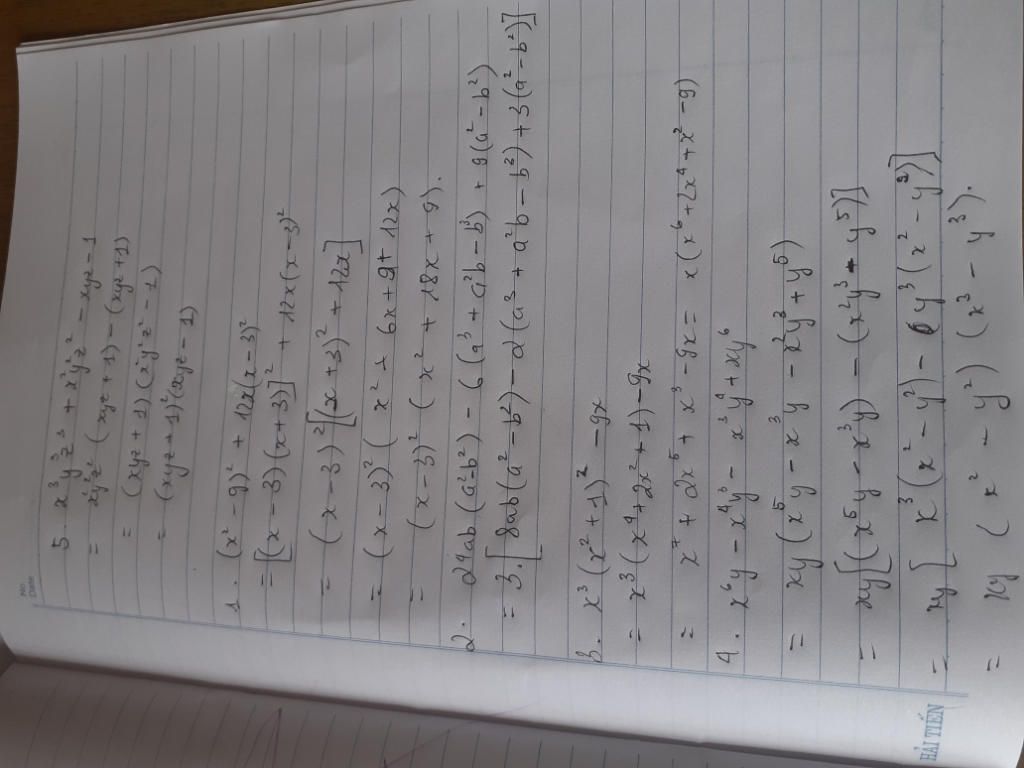 No.
Date
5. x³y³z³ + x²y²z² - xyz - 1
= x²y²z² (xyz + 1) - (xyz + 1)
= (xyz + 1)(x²y²z² - 1)
= (xyz + 1)² (xyz - 1)
1. (x² - 9)² + 12x(x - 3)²
= [(x - 3)(x + 3)]² + 12x(x - 3)²
= (x - 3)² [(x + 3)² + 12x]
= (x - 3)² (x² + 6x + 9 + 12x)
= (x - 3)² (x² + 18x + 9).
2. 24ab(a² - b²) - 6(a³ + a²b - b³) + 9(a² - b²)
= 3.[8ab(a² - b²) - 2(a³ + a²b - b³) + 3(a² - b²)]
3. x³(x² + 1)² - 9x
= x³(x⁴ + 2x² + 1) - 9x
= x⁷ + 2x⁵ + x³ - 9x = x(x⁶ + 2x⁴ + x² - 9)
4. x⁶y - x⁴y² - x³y⁴ + xy⁶
= xy(x⁵ - x³y - x²y³ + y⁵)
= xy[(x⁵ - x³y) - (x²y³ - y⁵)]
= xy[x³(x² - y²) - y³(x² - y²)]
= xy (x² - y²) (x³ - y³).
HẢI TIẾN